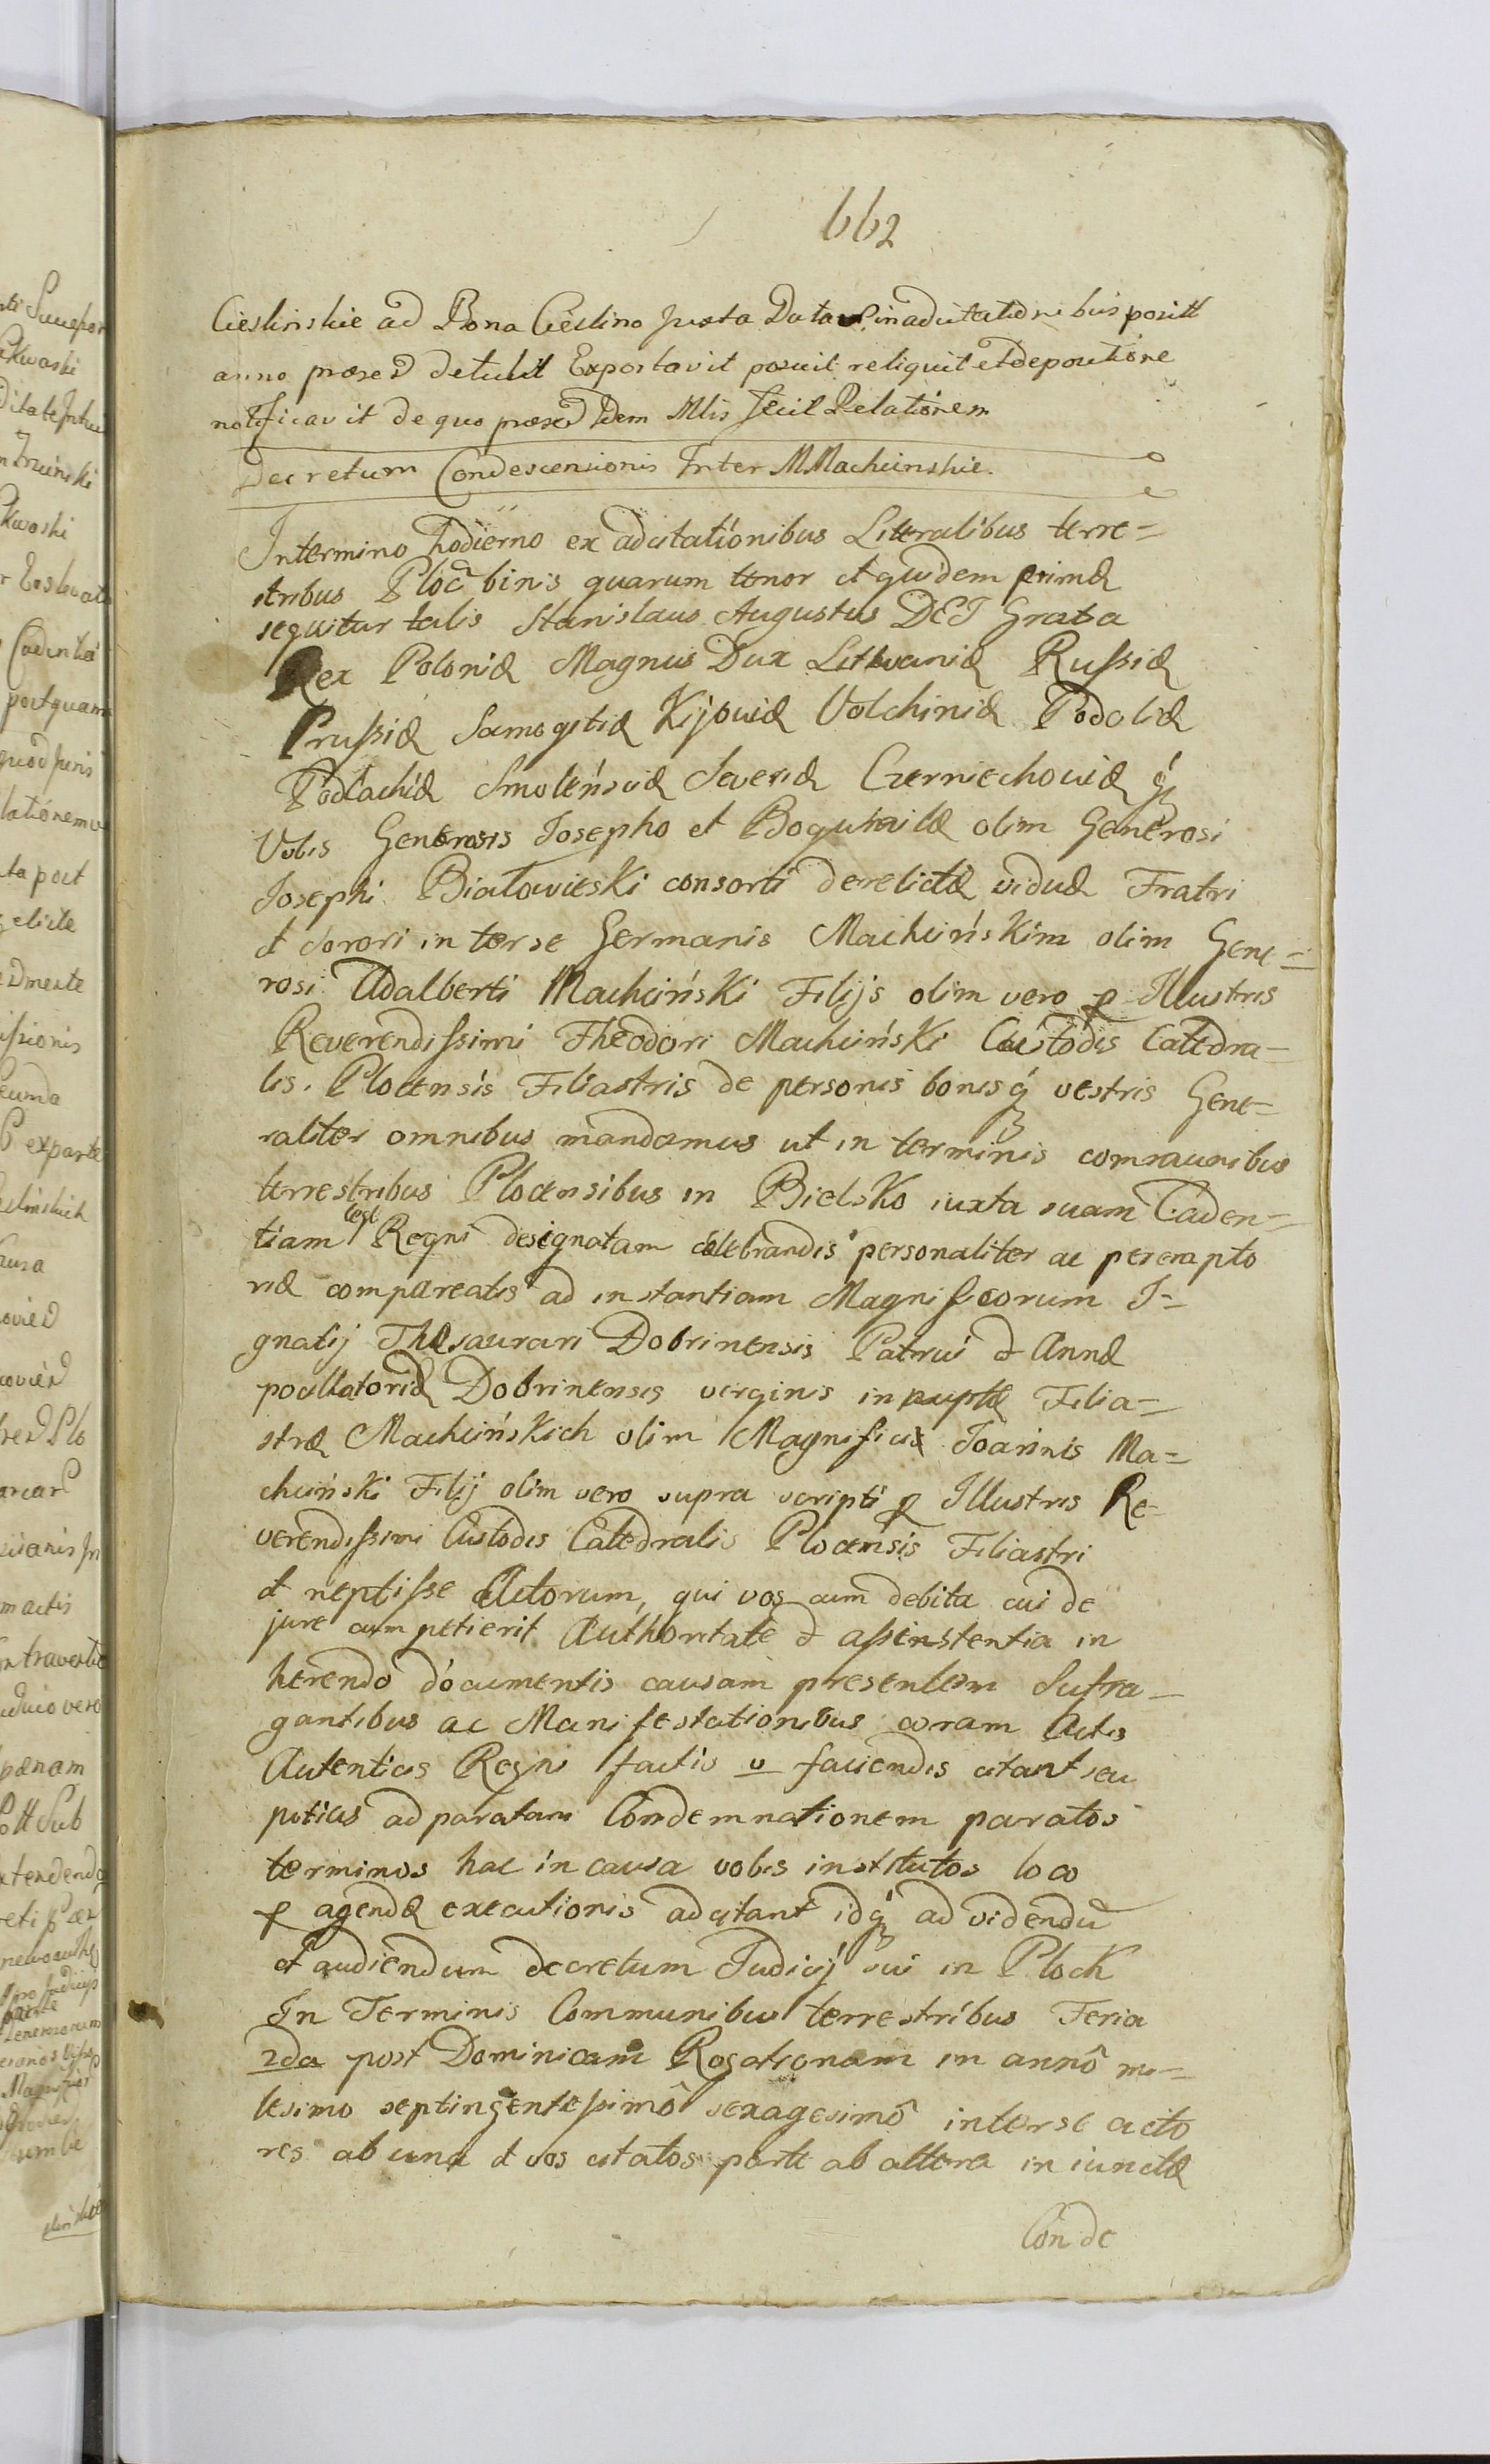 662
Cieslinskie ad Bona Cieslino Juxta Data in adcitationibus positt
anno præsed detulit Exportavit posuit reliquit et depositione
notificavit de quo præsed Idem Mlis fecit Relationem
Decretum Condescensionis Inter MMachcinskie.
Intermino hodierno ex adcitationibus Literalibus terre=
stribus Ploc binis quarum tenor et quidem primæ
sequitur talis Stanislaus Augustus DEI Gratia
Rex Poloniæ Magnus Dux Lithvaniæ Rußiæ
Prußiæ Samogitiæ Kijoviæ Volchiniæ Podoliæ
Podlachiæ Smolensciæ Severiæ Czerniechoviæ q́
Vobis Generosis Josepho et Bogumilæ olim Generosi
Josephi Białowieski consorti derelictæ viduæ Fratri
et Sorori in ter se Germanis Machcińskim olim Gene=
rosi Adalberti Machciński Filijs olim vero p Illustris
Reverendißimi Theodori Machciński Custodis Catedra=
lis. Plocensis Filiastris de personis bonisq́ vestris Gene=
raliter omnibus mandamus ut in terminis communibus
terrestribus Plocensibus in Bielsko iuxta suam Caden=
tiam lege Regni designatam celebrandis personaliter ac perempto
riæ compareatis ad instantiam Magnificorum I=
gnatij Thæsaurari Dobrinensis Patrui et Annæ
pocillatoriæ Dobrinensis virginis innuptæ Filia=
stræ Machcińskich olim Magnifici Joannis Ma=
chciński Filij olim vero supra scripti p Illustris Re-
verendißimi Custodis Catedralis Plocensis Filiastri
et neptiße Actorum, qui vos cum debita cui de
jure competierit Authoritate et aßinstentia in
herendo documentis causam presentem Sufra=
gantibus ac Manifestationibus coram Actis
Autenticis Regni factis v faciendis citant seu
potius ad paratam Condemnationem paratos
terminos hac in causa vobis institutos loco
p agendæ executionis adcitant idq́ ad videndū
et audiendum decretum Judicij sui in Plock
In Terminis Communibus terrestribus Feria
2da post Dominicam Rogationam in annô mi=
lesimo septingentesimô sexagesimô inter se acto
res ab una et vos citatos parte ab altera in iunctæ
Conde